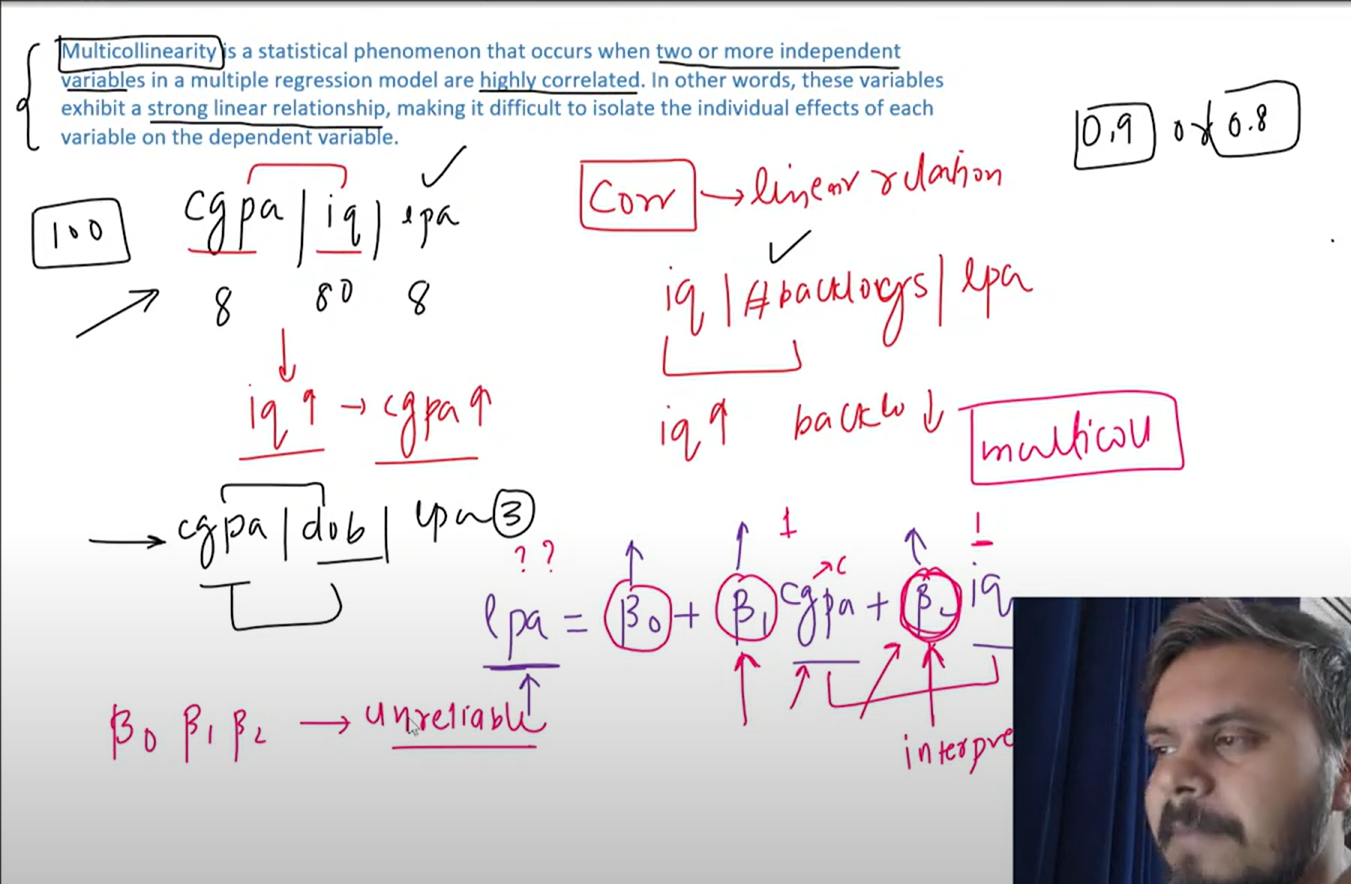 Multicollinearity is a statistical phenomenon that occurs when two or more independent
variables in a multiple regression model are highly correlated. In other words, these variables
exhibit a strong linear relationship, making it difficult to isolate the individual effects of each
variable on the dependent variable.
0.9 or 0.8
100
cgpa | iq | lpa
8 80 8
iq ↑ → cgpa ↑
Corr → linear relation
iq | #backlogs | lpa
iq ↑ backlo ↓
multicoll
→ cgpa | dob | lpa 3
? ?
1 1
lpa = β0 + β1 cgpa + β2 iq
→ c
β0 β1 β2 → unreliable
interpre